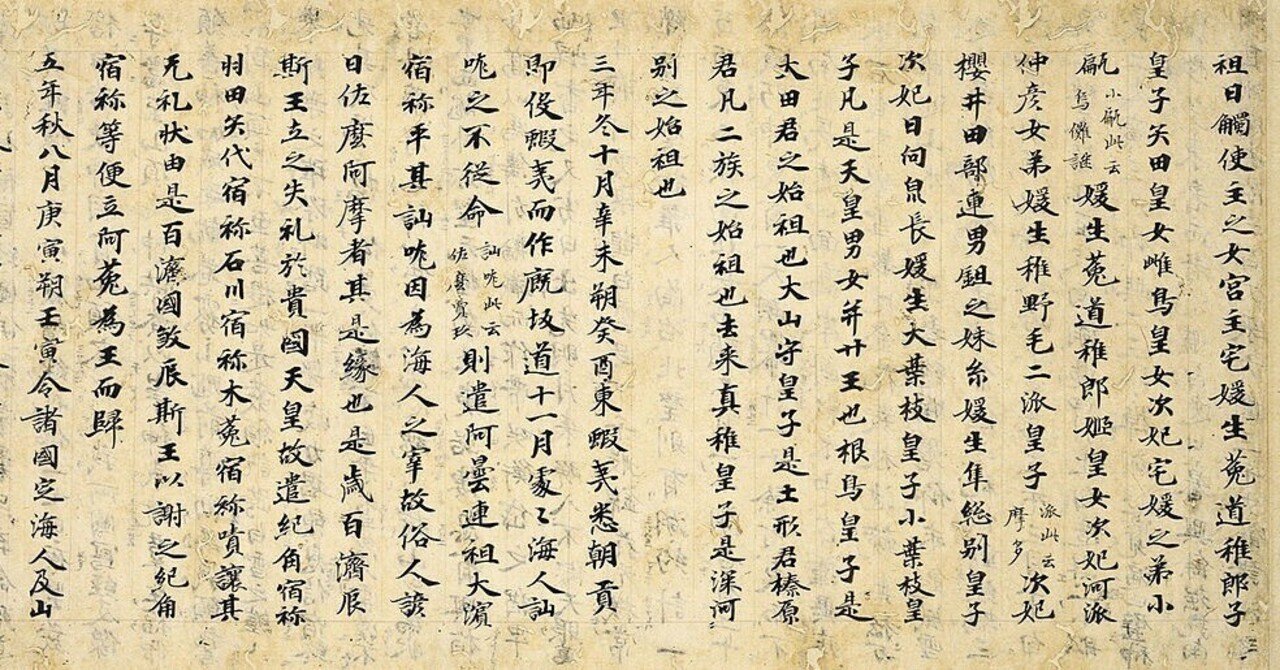 祖日觸使主之女宮主宅媛生菟道稚郎子
皇子矢田皇女雌鳥皇女次妃宅媛之弟小
甂小甂此云烏儺謎媛生菟道稚郎姬皇女次妃河派
仲彥女弟媛生稚野毛二派皇子派此云摩多次妃
櫻井田部連男鉏之妹糸媛生隼総別皇子
次妃日向泉長媛生大葉枝皇子小葉枝皇
子凡是天皇男女并廿王也根鳥皇子是
大田君之始祖也大山守皇子是土形君榛原
君凡二族之始祖也去来真稚皇子是深河
別之始祖也
三年冬十月辛未朔癸酉東蝦夷悉朝貢
即役蝦夷而作厩坂道十一月處〻海人訕
哤之不従命訕哤此云佐麼賣玖則遣阿曇連祖大濱
宿祢平其訕哤因為海人之宰故俗人諺
曰佐麼阿摩者其是縁也是歳百濟辰
斯王立之失礼於貴國天皇故遣紀角宿祢
羽田矢代宿祢石川宿祢木菟宿祢嘖讓其
无礼狀由是百濟國敘辰斯王以謝之紀角
宿祢等便立阿菟為王而歸
五年秋八月庚寅朔壬寅令諸國定海人及山